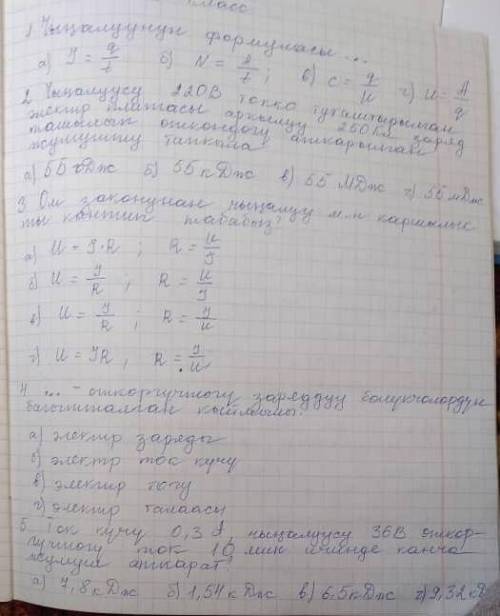 класс
1 Чыңалуунун формуласы ...
а) I = q/t б) N = A/t; в) c = q/U г) U = A/q
2. Чыңалуусу 220В токко туташтырылган
электр плитасы аркылуу 250 Кл заряд
өткөндөгү аткарылган
жумушту тапкыла
а) 55 гДж б) 55 кДж в) 55 МДж г) 55 мДж
3 Ом законунан чыңалуу м.н каршылык
ты кантип табабыз?
а) U = I·R ; R = U/I
б) U = I/R ; R = U/I
в) U = I/R ; R = I/U
г) U = IR, R = I/U
4. ... - өткөргүчтөгү заряддуу бөлүкчөлөрдүн
багытталган кыймылы.
а) электр заряды
б) электр ток күчү
в) электр тогу
г) электр талаасы
5. Ток күчү 0,3 А, чыңалуусу 36В өткөр-
гүчтөгү ток 10 мин ичинде канча
жумуш аткарат
а) 7,8 кДж б) 1,54 кДж в) 6.5 кДж г) 9,32 к